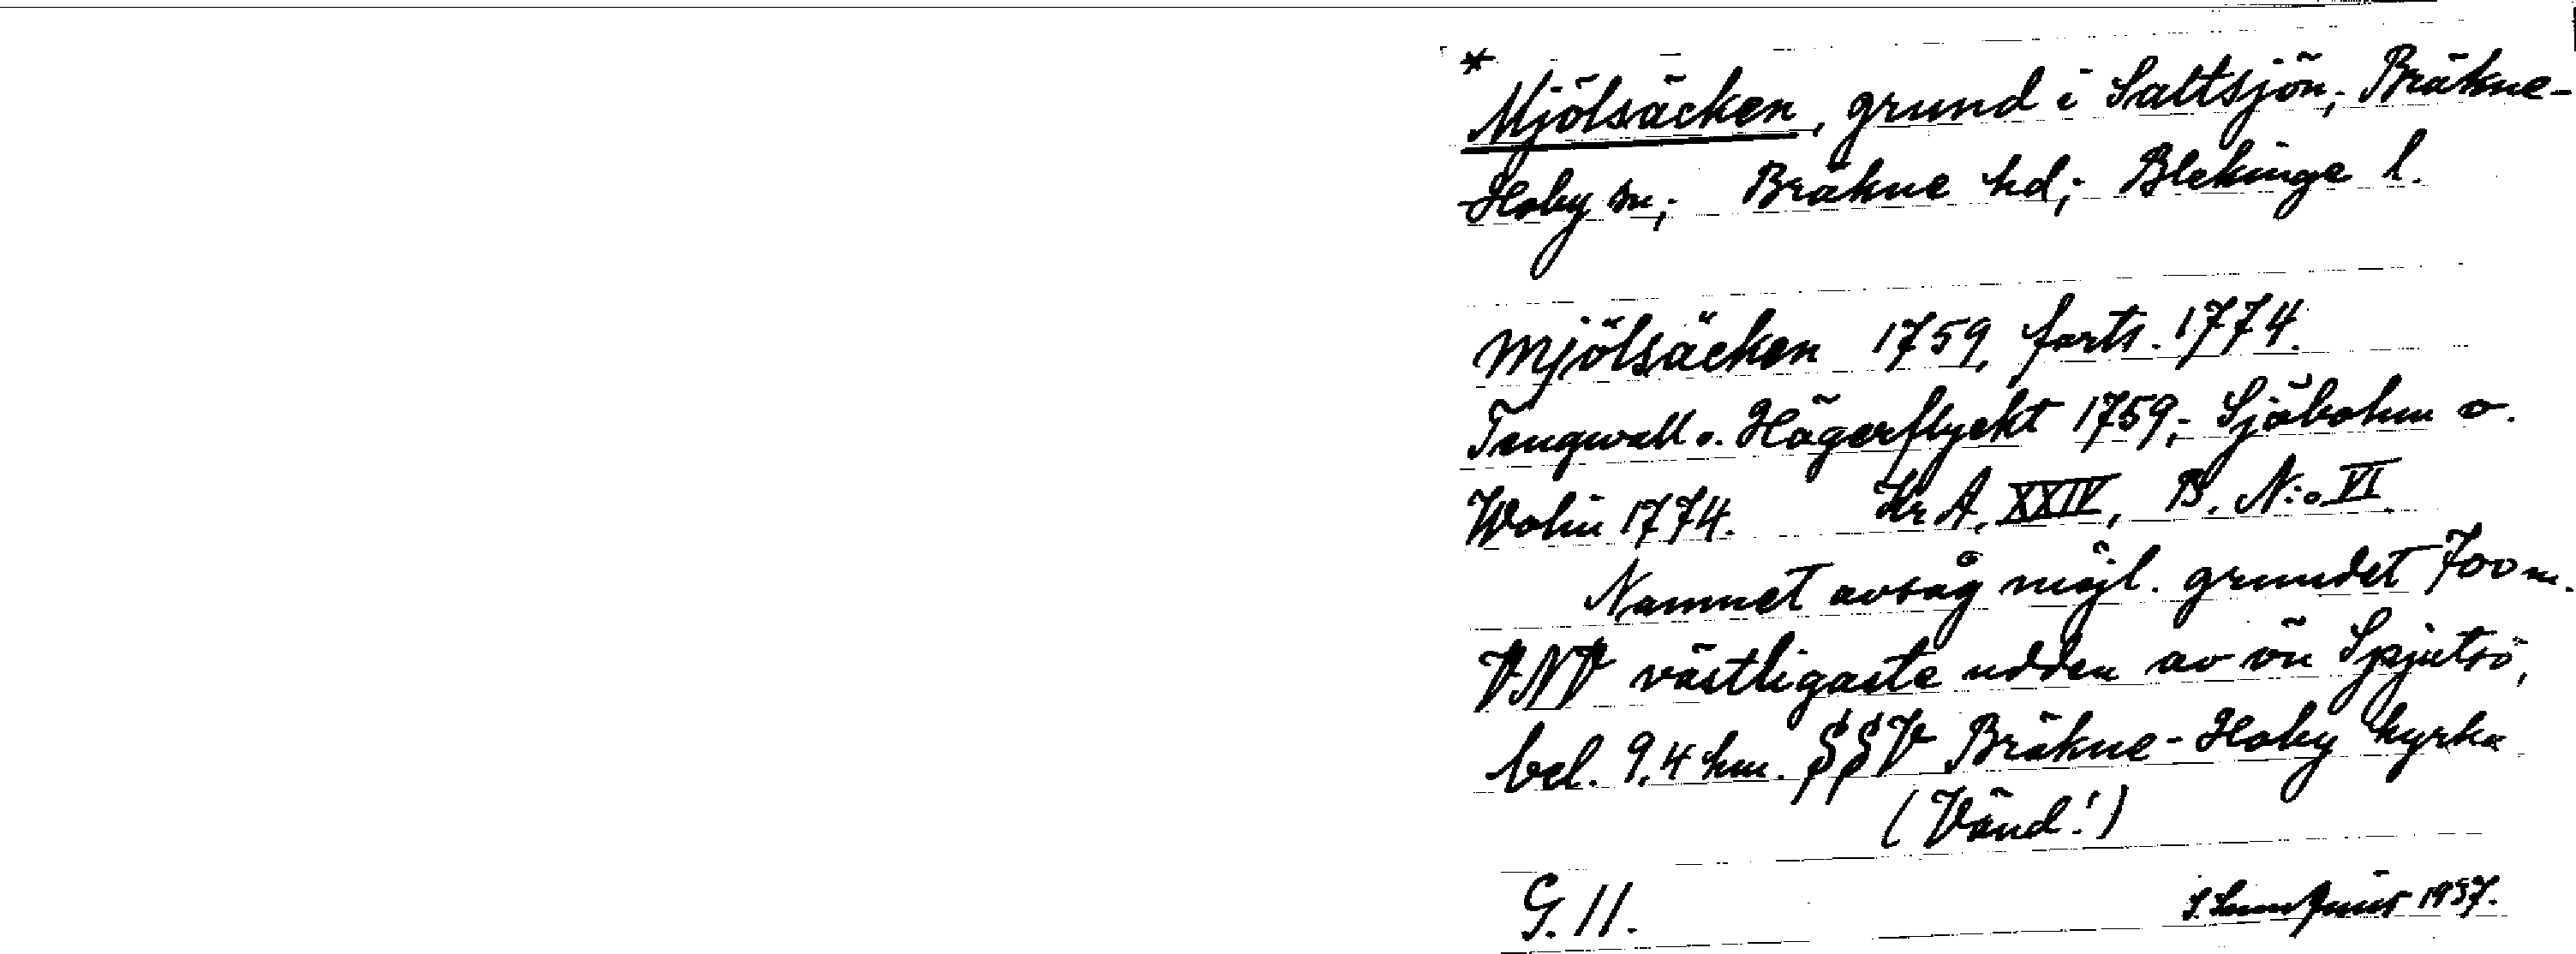 *
Mjölsäcken, grund i Saltsjön; Bräkne-
Hoby sn; Bräkne hd; Blekinge l.
Mjölsäcken 1759, forts. 1774.
Tengwall o. Hägerflyckt 1759; Sjöbohm o.
Wolin 1774. Kr A, XXIV, B. N:o VI
Namnet avsåg möjl. grundet 700 m.
VNV västligaste udden av ön Spjutsö,
bel. 9,4 km. SSV Bräkne-Hoby kyrka
(Vänd!)
G. 11.
1957.